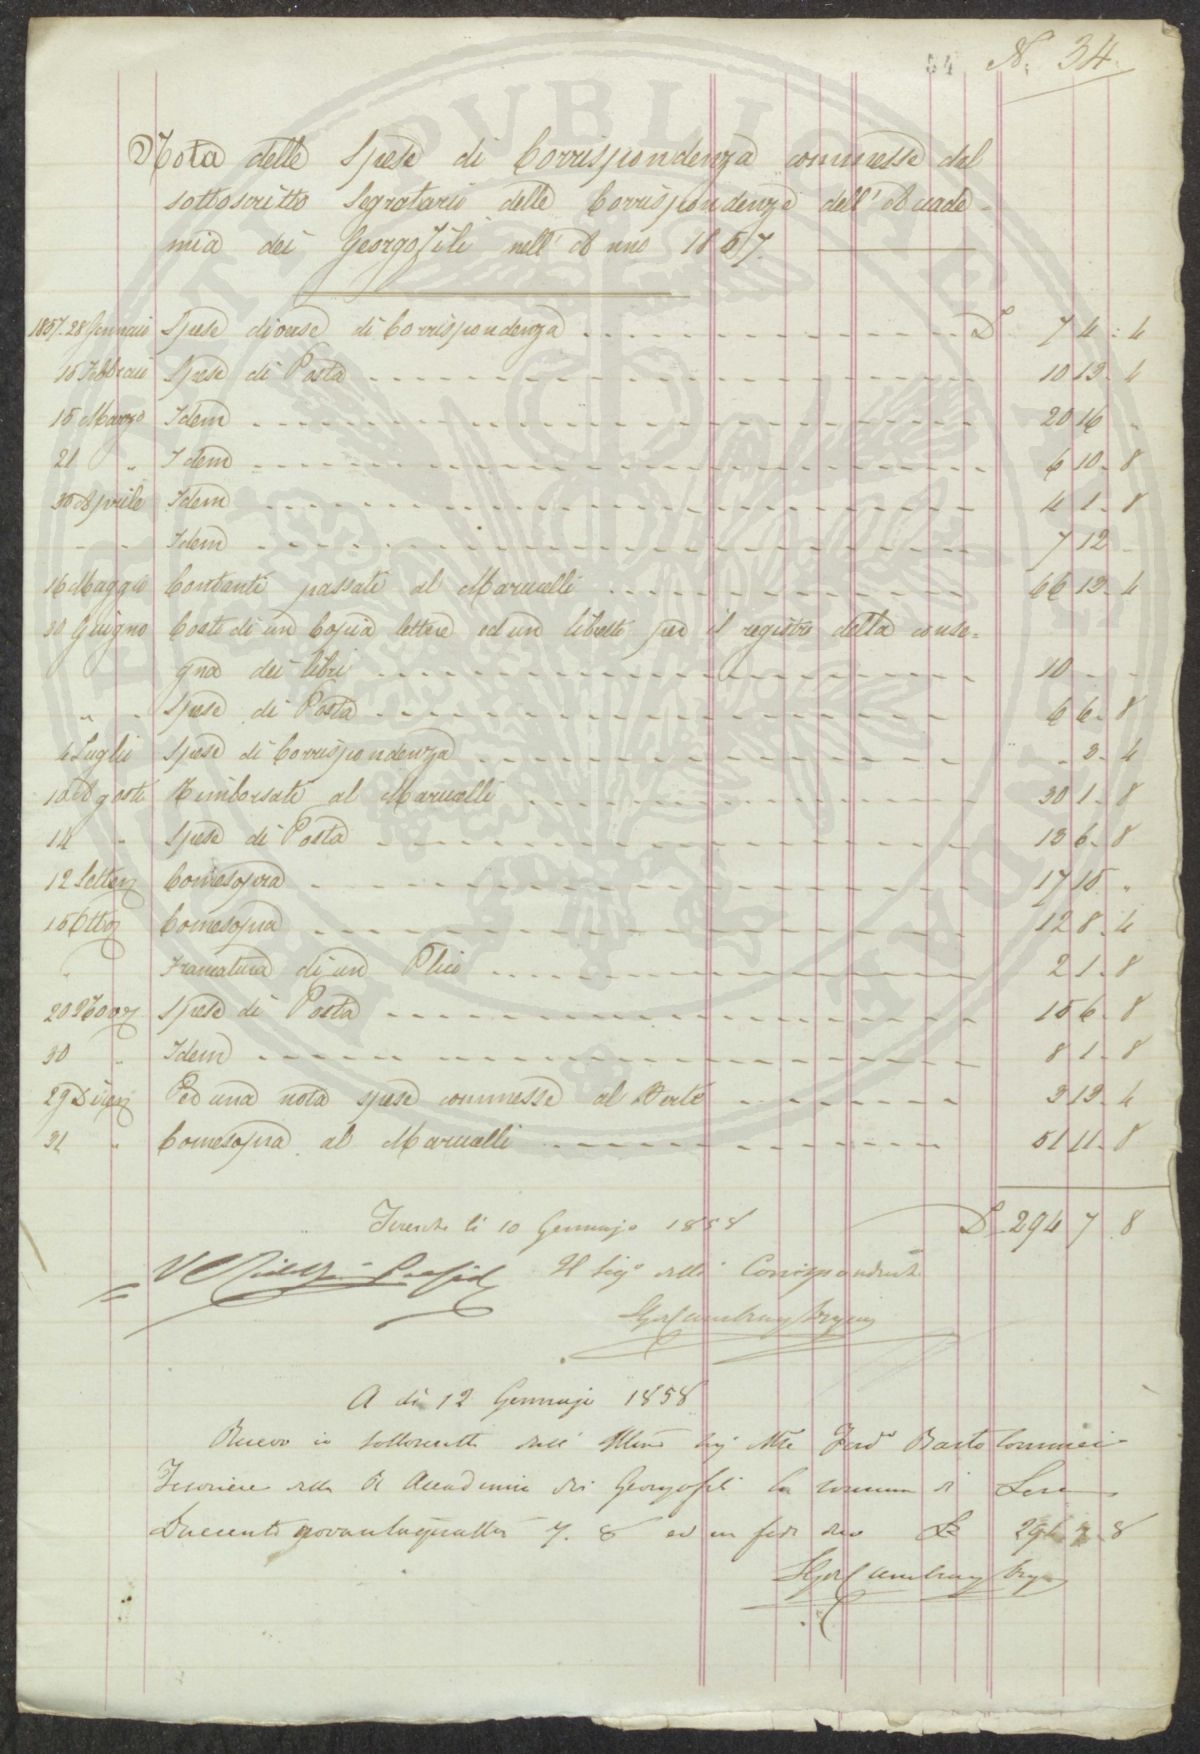 N. 34.
Nota delle Spese di Corrispondenza commesse dal
sottoscritto Segretario delle Corrispondenze dell'Accade-
mia dei Georgofili nell'Anno 1857.
1857. 28 Gennaio Spese diverse di Corrispondenza L 7 4 : 4
16 Febbraio Spese di Posta 10 13 - 4
15 Marzo Idem 20 16 "
21 " Idem 6 10 - 8
30 Aprile Idem 4 1 - 8
- - Idem 7 12 -
16 Maggio Contanti passati al Marucelli 66 13 - 4
30 Giugno Costo di un Copia lettere ed un libretto per il registro della conse-
gna dei libri 10 - -
" - Spese di Posta 6 6 - 8
4 Luglio Spese di Corrispondenza - 3 - 4
10 Agosto Rimborsati al Marucelli 30 1 - 8
14 - Spese di Posta 13 6 - 8
12 Settem Comesopra 17 15 "
15 Ottob Comesopra 12 8 - 4
" Francatura di un Plico 2 1 - 8
20 Nov Spese di Posta 15 6 - 8
30 " Idem 8 1 - 8
29 Dicem Ed una nota spese commesse al Berti 3 13 - 4
31 " Comesopra al Marucelli 51 11 - 8
Firenze li 10 Gennajo 1858 L 294 7 8
Il Seg.o delle Corrispondenze
A dì 12 Gennajo 1858
Ricevo io sottoscritto dall' Illmo Sig Mse Ferd.o Bartolommei
Tesoriere della R Accademia dei Georgofili la somma di Lire
Duecentonovantaquattro 7. 8 ed in fede dico L 294 7 8
PUBLICAE